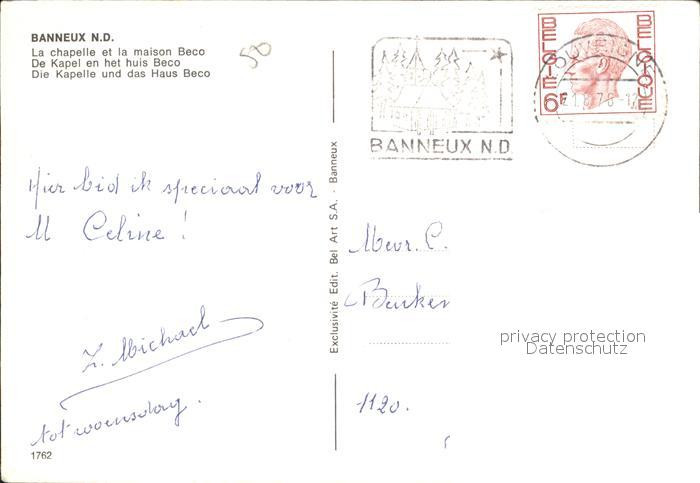 BANNEUX N.D.
La chapelle et la maison Beco
De Kapel en het huis Beco
Die Kapelle und das Haus Beco
50
BANNEUX N.D.
BELGIE
BELGIQUE
6F
LOUVEIGNE
21.8.78-12
Hier bid ik speciaal voor
U Celine!
Z. Michael
tot woensdag.
1762
Exclusivité Edit. Bel Art S.A. - Banneux
Mevr. C.
1120.
privacy protection
Datenschutz